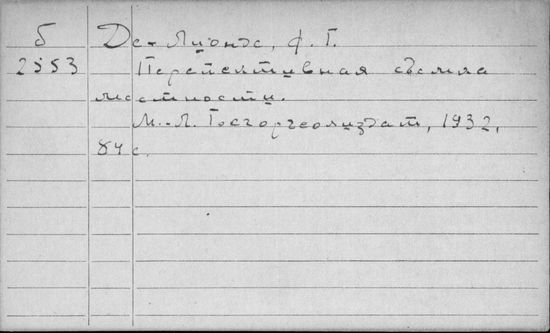 б Де-Лионде, Ф. Г.
2553 Перспективная съемка
местности.
М.-Л. Госгоргеолиздат, 1932,
84 с.